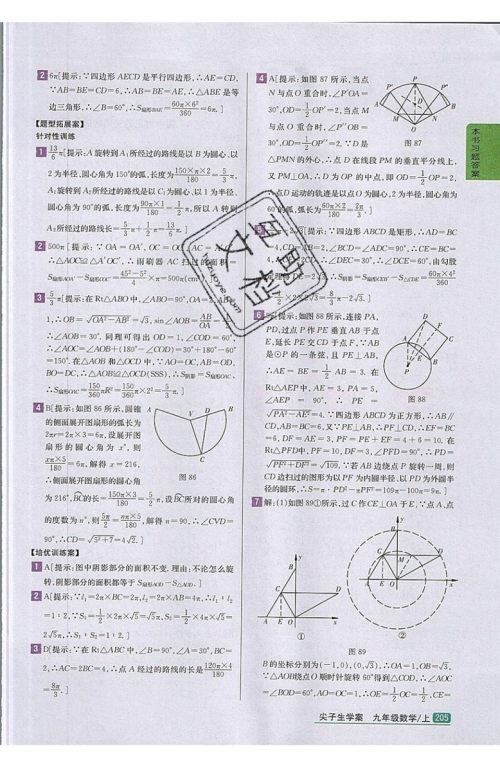 2 6π[提示:∵四边形 AECD 是平行四边形,∴AE=CD,
∵AB=BE=CD=6,∴AB=BE=AE,∴△ABE 是等
边三角形,∴∠B=60°,∴S扇形BAE=60π×6²/360=6π.]
【题型拓展案】
针对性训练
1 13/6π[提示:A 旋转到 A₁ 所经过的路线是以 B 为圆心,以
2 为半径,圆心角为 150°的弧,长度为150π×2/180=5/3π,
A₁ 旋转到 A₂ 所经过的路线是以 C₁ 为圆心,以 1 为半径,
圆心角为 90°的弧,长度为90π×1/180=1/2π,所以 A 转到
A₂ 所经过的路线长=5/3π+1/2π=13/6π.]
2 500π[提示:∵OA=OA′,OC=OC
∴△AOC≌△A′OC′,∴雨刷器 AC 扫过的面积
S扇形AOA′-S扇形COC′=45²-5²/4×π=500π(cm²)
3 5/3π[提示:在 Rt△ABO 中,∠ABO=90°,OA=2,AB=
1,∴OB=√OA²-AB²=√3,sin∠AOB=AB/OA
∴∠AOB=30°.同理可得出 OD=1,∠COD=60°,
∴∠AOC=∠AOB+(180°-∠COD)=30°+180°-60°
=150°.在△AOB 和△OCD 中,∵AO=OC,AB=OD,
BO=DC,∴△AOB≌△OCD(SSS),∴S阴影=S扇形OAC,
∴S扇形OAC=150/360πR²=150/360π×2²=5/3π.]
4 B[提示:如图 86 所示,圆锥
的侧面展开图扇形的弧长为
2πr=2π×3=6π,设展开图
扇形的圆心角为 x°,则
xπ×5/180=6π,解得 x=216,
∴侧面展开图扇形的圆心角
A
V
D
B
C
图 86
为 216°,BC的长=150π×3/180=5/2π,设BC所对的圆心角
的度数为 n°,则5π/2=nπ×5/180,解得 n=90,∴∠CVD=
90°,∴CD=√5²+7=4√2.]
【培优训练案】
1 A[提示:图中阴影部分的面积不变.理由:不论怎么旋
转,阴影部分的面积都等于 S扇形AOD-S△AOD.]
2 A[提示:∵l₁=2π×BC=2π,l₂=2π×AB=4π,∴l₁:l₂
=1:2,∵S₁=1/2×2π×√5=√5π,S₂=1/2×4π×√5=
2√5π,∴S₁:S₂=1:2.]
3 D[提示:∵在 Rt△ABC 中,∠B=90°,∠A=30°,BC=
2,∴AC=2BC=4,∴点 A 经过的路线的长是120π×4/180
=8π/3.]
4 A[提示:如图 87 所示,当点
N 与点 O 重合时,∠P′OA=
30°,OD=1/2OP′=2,当点 M
与点 O 重合时,∠P″OB=
30°,OD=1/2OP″=2.∵D 是
P′
P
P″
A
D
B
M
O
N
图 87
△PMN 的外心,∴点 D 在线段 PM 的垂直平分线上,
又 PM⊥OA,∴D 为 OP 的中点,即 OD=1/2OP=2,
∴点 D 运动的轨迹是以点 O 为圆心,2 为半径,圆心角为
60°的弧,弧长为60π×2/180=2π/3.]
[提示:∵四边形 ABCD 是矩形,∴AD=BC
∠BCD=∠ADC=90°,∴CE=BC=
∴∠DEC=30°,∴∠DCE=60°,由勾股
DE=2√3,∴S阴影=S扇形CEB′-S△CDE=60π×4²/360
×2×2√3=8/3π-2√3.]
6 [提示:如图 88 所示,连接 PA,
PD,过点 P 作 PE 垂直 AB 于点
E,延长 PE 交 CD 于点 F,∵AB
是⊙P 的一条弦,且 PE⊥AB,
∴AE=BE=1/2AB=3.在
Rt△AEP 中,AE=3,PA=5,
∠AEP=90°,∴PE=
D
F
C
A
E
B
P
图 88
√PA²-AE²=4.∵四边形 ABCD 为正方形,∴AB∥
CD,AB=BC=6,又∵PE⊥AB,∴PF⊥CD,∴EF=BC
=6,DF=AE=3,PF=PE+EF=4+6=10.在
Rt△PFD 中,PF=10,DF=3,∠PFD=90°,∴PD=
√PF²+DF²=√109.∵若 AB 边绕点 P 旋转一周,则
CD 边扫过的图形为以 PF 为内圆半径,以 PD 为外圆半
径的圆环.∴S=π·PD²-πPF²=109π-100π=9π.]
7 解:(1)如图 89①所示,过 C 作 CE⊥OA 于 E,∵点 A,点
y
B
C
D
A
E
O
x
①
②
图 89
B 的坐标分别为(-1,0),(0,√3),∴OA=1,OB=√3,
∵△AOB绕点O 顺时针旋转 60°得到△COD,∴∠AOC
=∠BOD=60°,AO=OC=1,∴OE=1/2OC=1/2,CE=
本书习题答案
尖子生学案 九年级数学/上 205